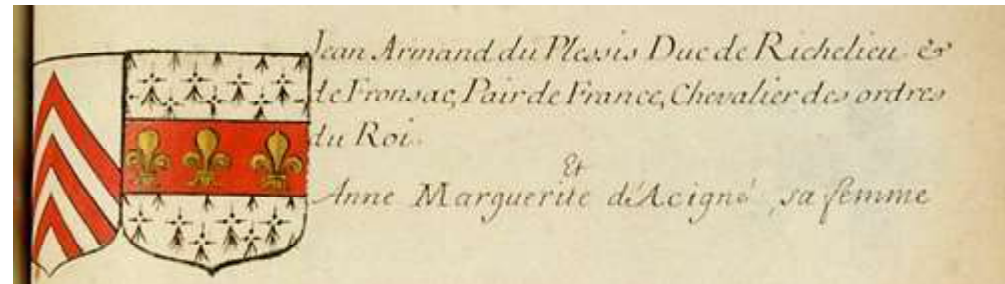 Jean Armand du Plessis Duc de Richelieu &
de Fronsac, Pair de France, Chevalier des ordres
du Roi.
Et
Anne Marguerite d'Acigné, sa femme